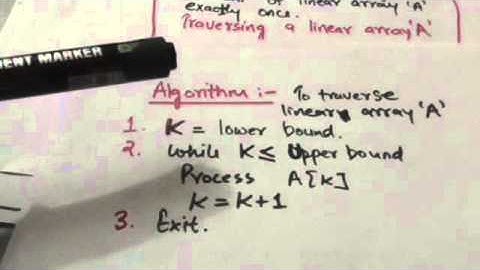 of linear array 'A'
exactly once.
Traversing a linear array 'A'
NENT MARKER
Algorithm :- To traverse
linear array 'A'
1. K = lower bound.
2. While K ≤ Upper bound
Process A[K]
K = K+1
3. Exit.